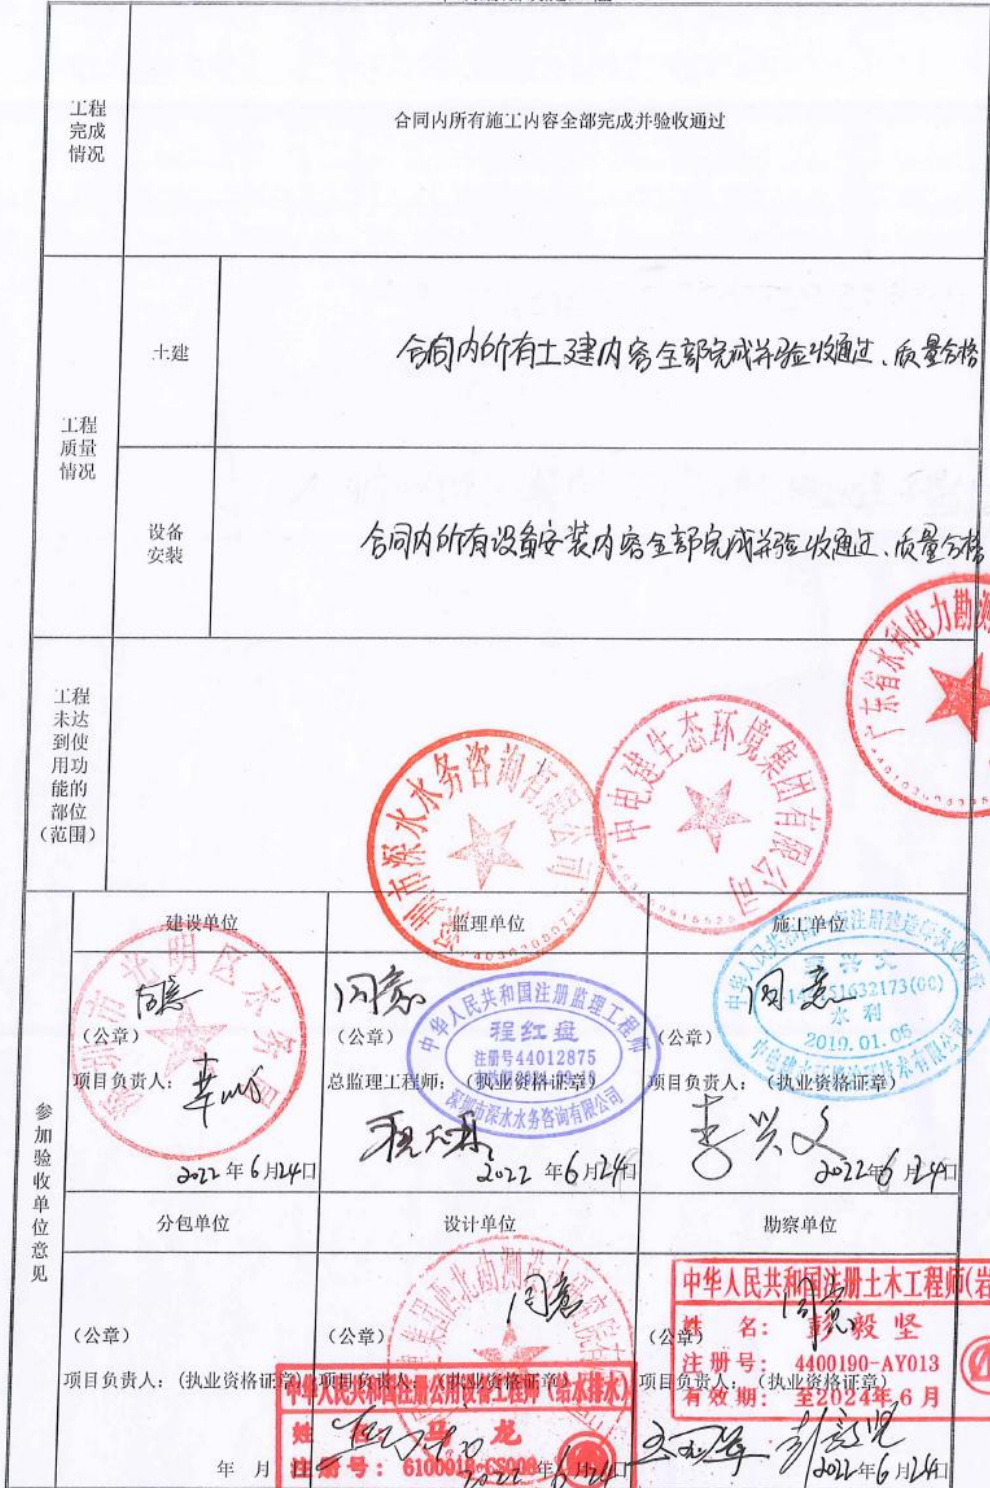 工程
完成
情况
合同内所有施工内容全部完成并验收通过
工程
质量
情况
土建
合同内所有土建内容全部完成并验收通过、质量合格
设备
安装
合同内所有设备安装内容全部完成并验收通过、质量合格
工程
未达
到使
用功
能的
部位
(范围)
深圳市深水水务咨询有限公司
中电建生态环境集团有限公司
广东省水利电力勘测
参加验收单位意见
建设单位
深圳市光明区水务局
同意
(公章)
项目负责人:
2022年6月24日
监理单位
同意
(公章)
中华人民共和国注册监理工程师
程红盘
注册号44012875
深圳市深水水务咨询有限公司
总监理工程师: (执业资格证章)
2022年6月24日
施工单位
同意
(公章)
水利
2019.01.06
项目负责人: (执业资格证章)
李兴文
2022年6月24日
分包单位
(公章)
项目负责人: (执业资格证章)
年 月
设计单位
同意
(公章)
项目负责人: (执业资格证章)
中华人民共和国注册公用设备工程师(给水排水)
姓 名: 马龙
注册号:
2022年6月24日
勘察单位
同意
(公章)
中华人民共和国注册土木工程师(岩
姓 名: 彭毅坚
注册号: 4400190-AY013
有效期: 至2024年6月
项目负责人: (执业资格证章)
彭毅坚
2022年6月24日